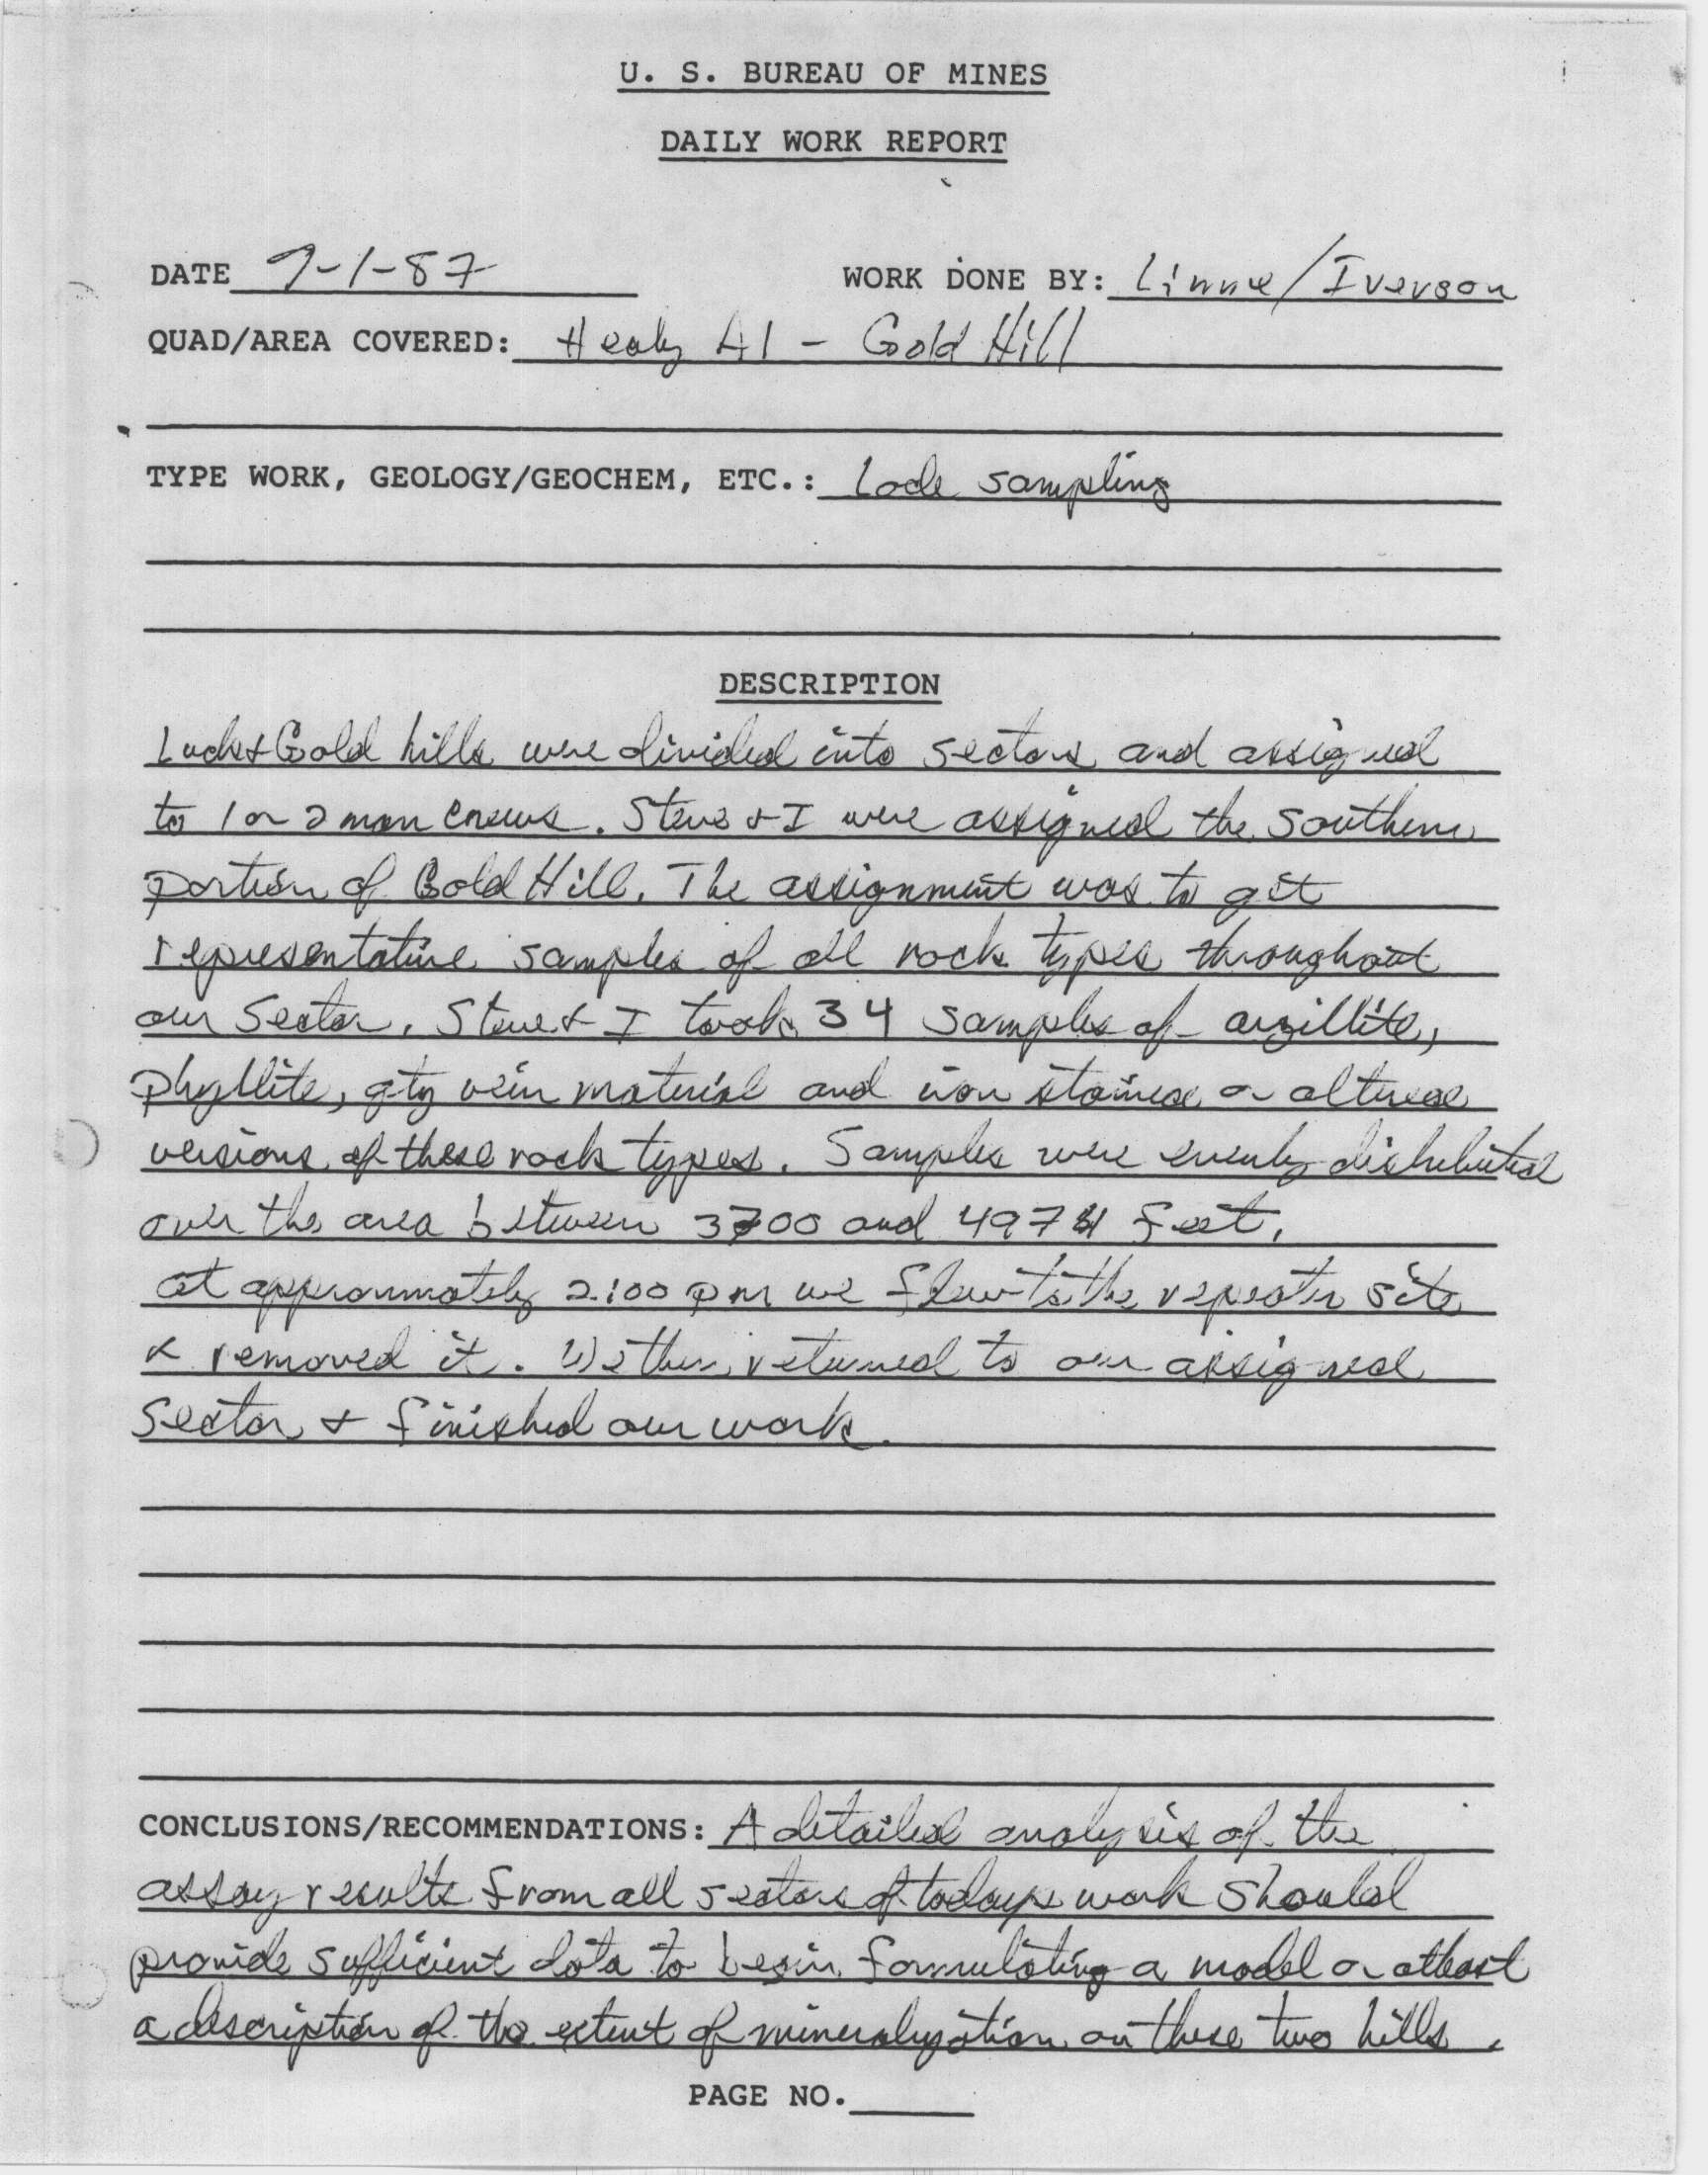 U. S. BUREAU OF MINES
DAILY WORK REPORT
DATE 9-1-87 WORK DONE BY: Linne/Iverson
QUAD/AREA COVERED: Healy A1 - Gold Hill
TYPE WORK, GEOLOGY/GEOCHEM, ETC.: Lode sampling
DESCRIPTION
Luck + Gold hills were divided into sectors and assigned
to 1 or 2 man crews. Steve + I were assigned the southern
portion of Gold Hill. The assignment was to get
representative samples of all rock types throughout
our sector. Steve + I took 34 samples of argillite,
phyllite, qtz vein material and iron stained or altered
versions of these rock types. Samples were evenly distributed
over the area between 3700 and 4974 feet.
at approximately 2:00 pm we flew to the repeater site
& removed it. We then returned to our assigned
sector + finished our work.
CONCLUSIONS/RECOMMENDATIONS: A detailed analysis of the
assay results from all sectors of todays work should
provide sufficient data to begin formulating a model or atleast
a description of the extent of mineralyzation on these two hills.
PAGE NO.